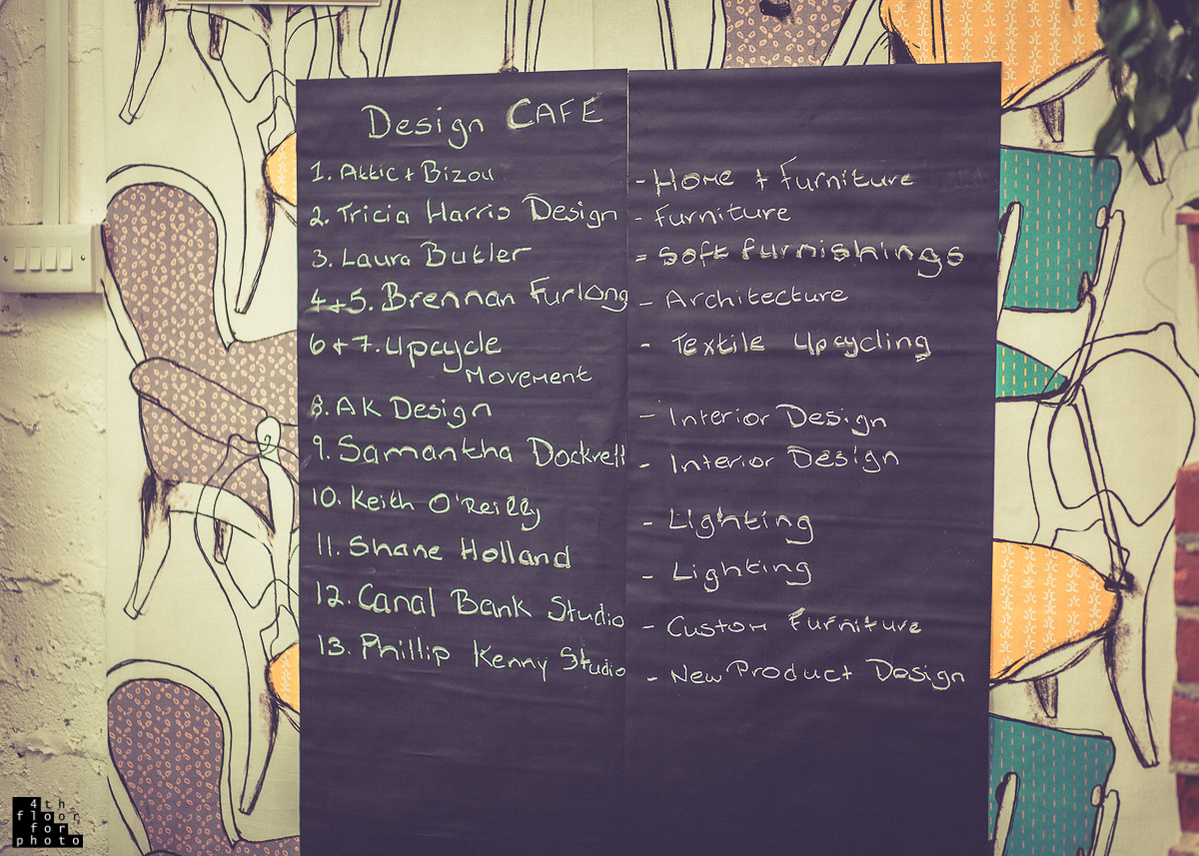 Design CAFE
1. Attic + Bizou - Home + Furniture
2. Tricia Harris Design - Furniture
3. Laura Butler = Soft furnishings
4+5. Brennan Furlong - Architecture
6+7. Upcycle - Textile Upcycling
Movement
8. AK Design - Interior Design
9. Samantha Dockrell - Interior Design
10. Keith O'Reilly - Lighting
11. Shane Holland - Lighting
12. Canal Bank Studio - Custom Furniture
13. Phillip Kenny Studio - New Product Design
4th
floor
for
photo